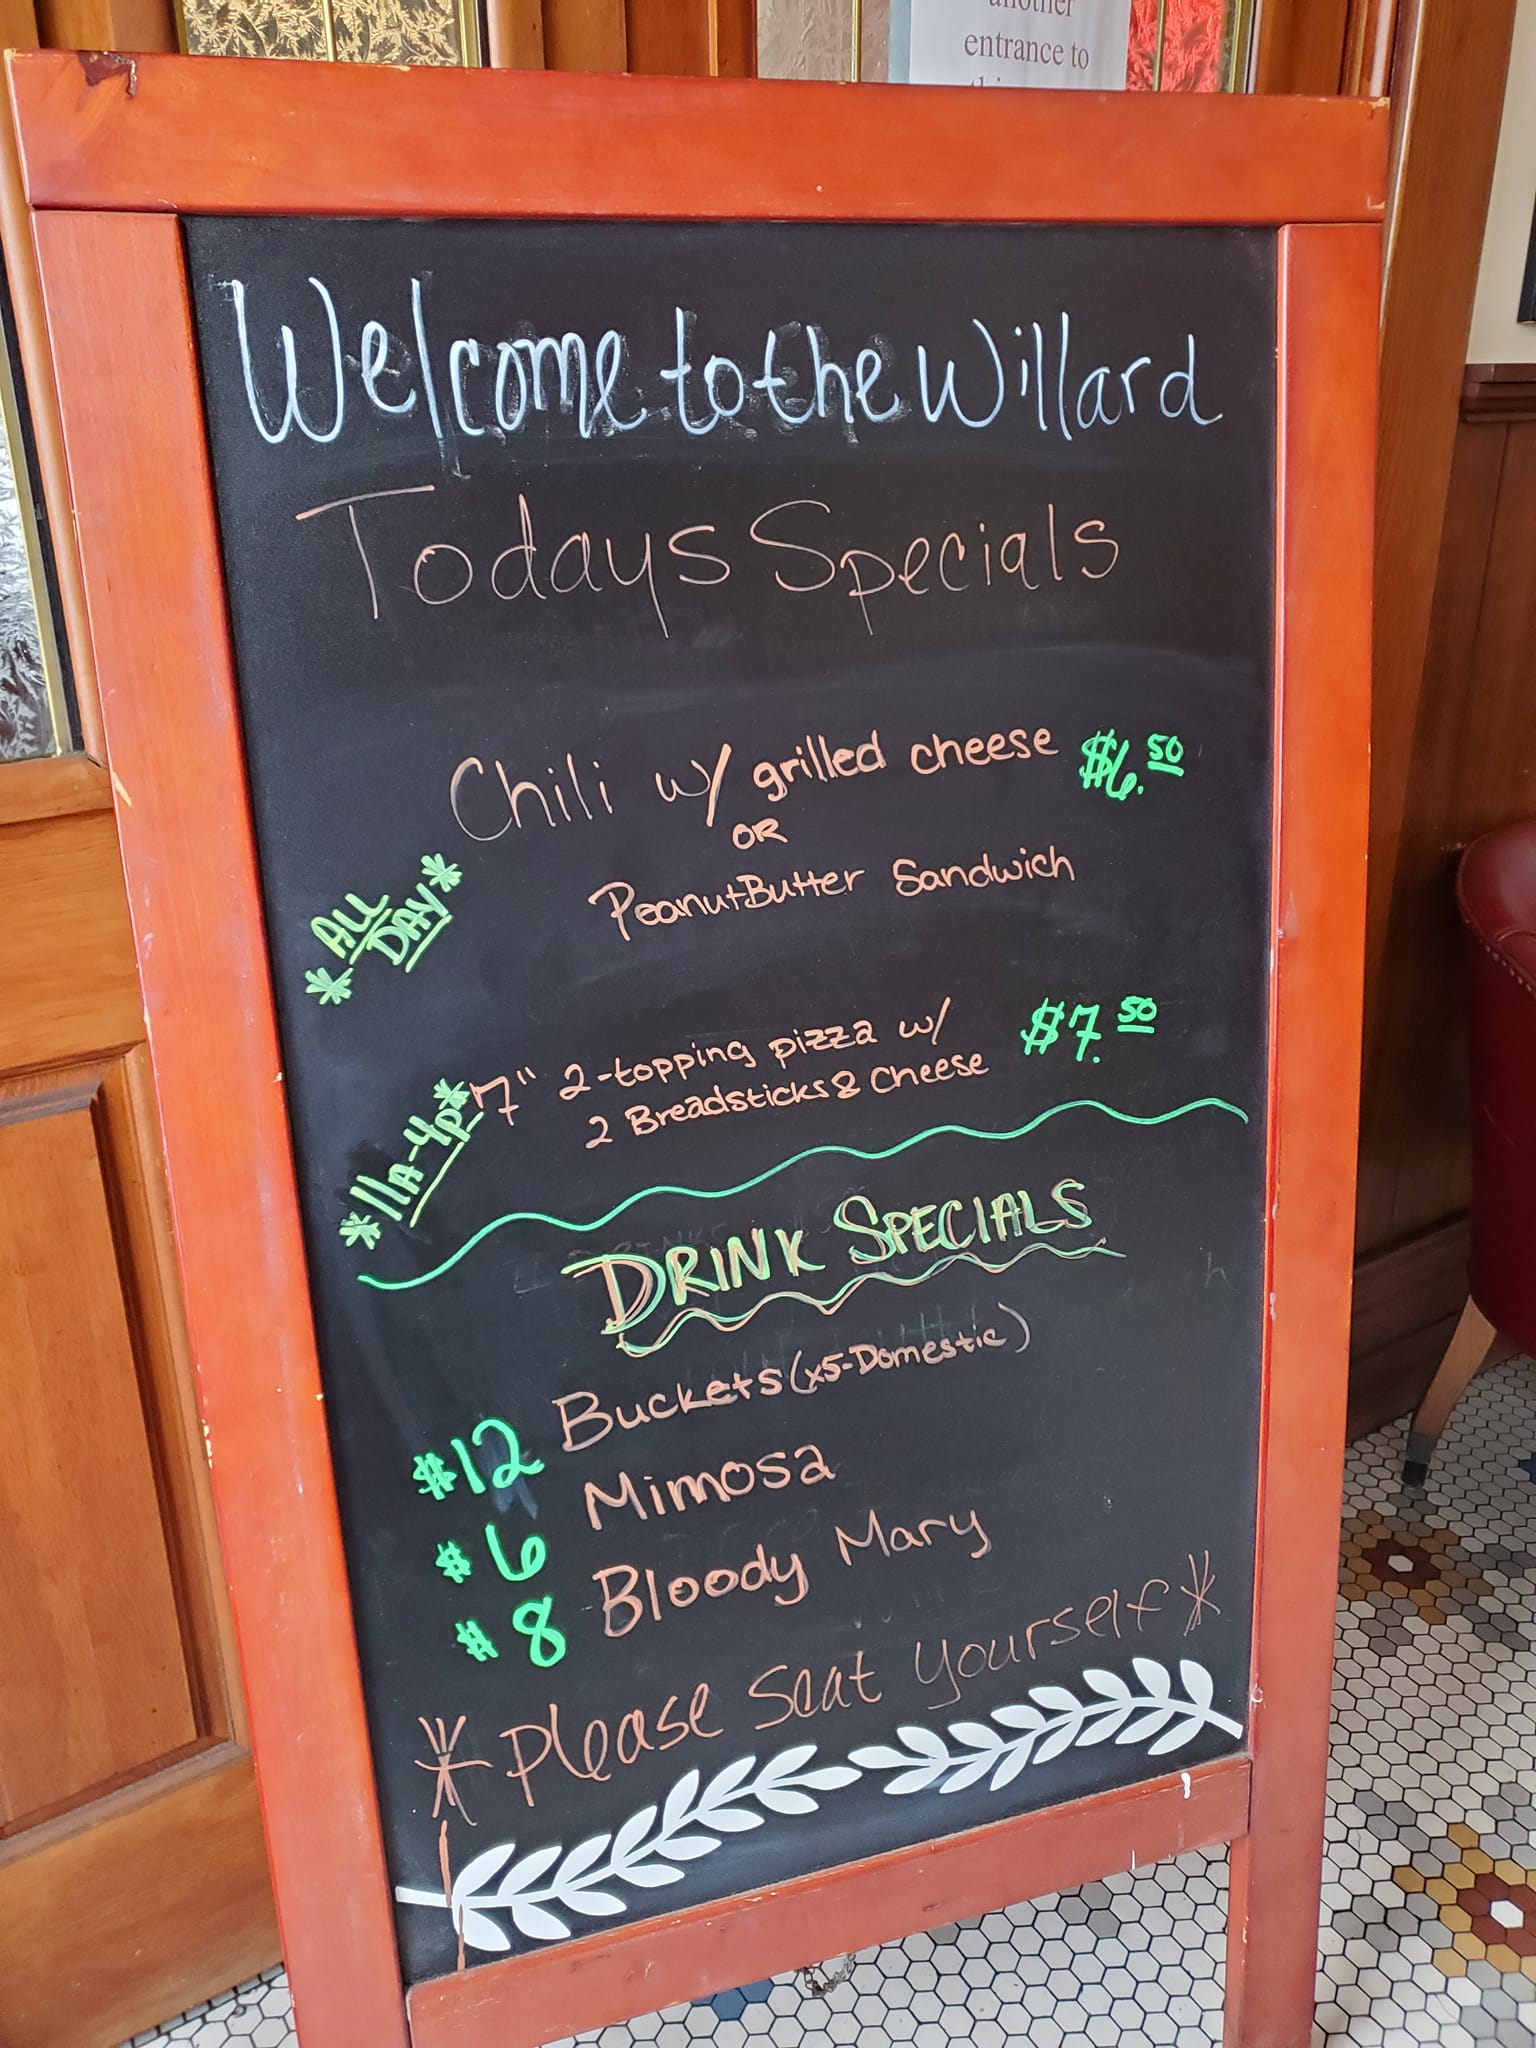 another
entrance to
Welcome to the Willard
Todays Specials
Chili w/ grilled cheese $6.50
OR
PeanutButter Sandwich
*ALL
DAY*
7" 2-topping pizza w/ $7.50
2 Breadsticks & Cheese
*11A-4p*
DRINK SPECIALS
$12 Buckets (x5-Domestic)
$6 Mimosa
$8 Bloody Mary
*Please Seat Yourself*